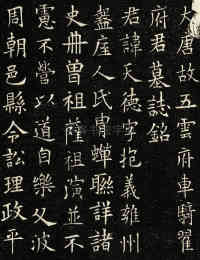 大唐故五雲府車騎翟
府君墓誌銘
君諱天德字抱義雍州
盩厔人氏冑蟬聯詳諸
史册曾祖薩祖演並不
應不營以道自樂父波
周朝邑縣令訟理政平